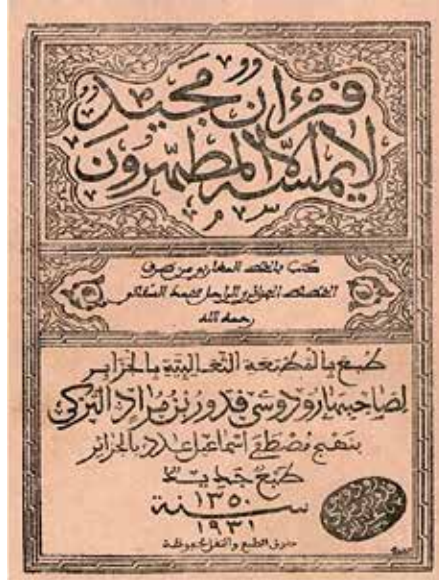 قرءان مجيد
لا يمسه إلا المطهرون
كتب بالخط المغاربي من طرف
الخطاط التجاني والراجل محمد السفاكسي
رحمه الله
طبع بالمطبعة الثعالبية بالجزائر
لصاحبها رودوسي قدور بن مراد التركي
بنهج مصطفى اسماعيل عدد بالجزائر
طبع جديد
سنة
١٣٥٠
١٩٣١
حقوق الطبع والنقل محفوظة